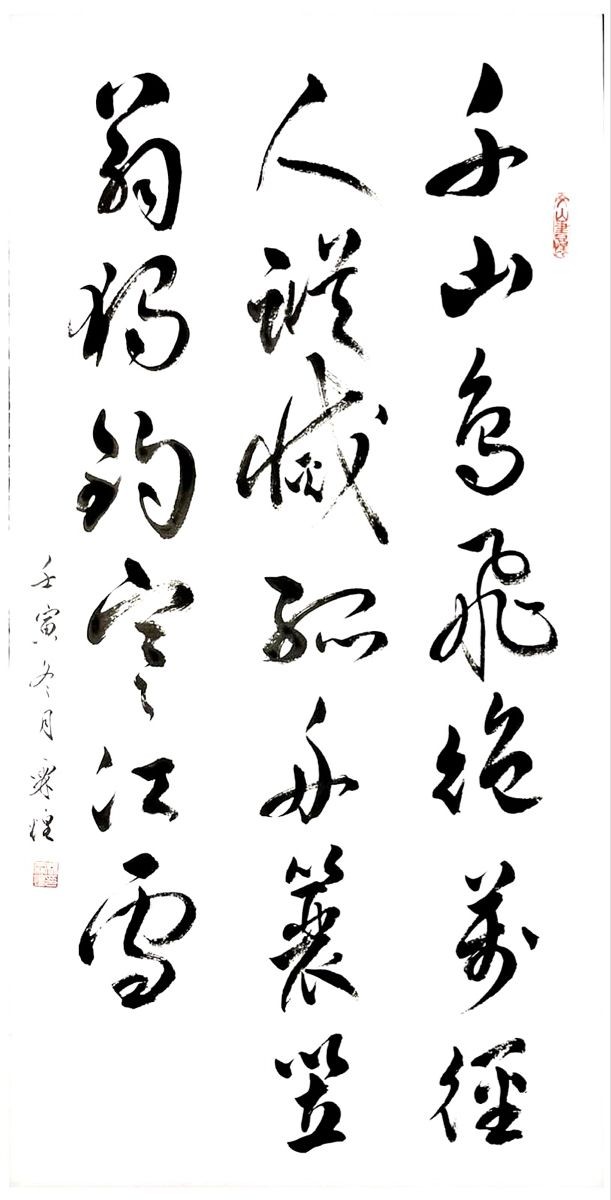 千山鳥飛絕萬徑
人蹤滅孤舟簑笠
翁獨釣寒江雪
壬寅冬月